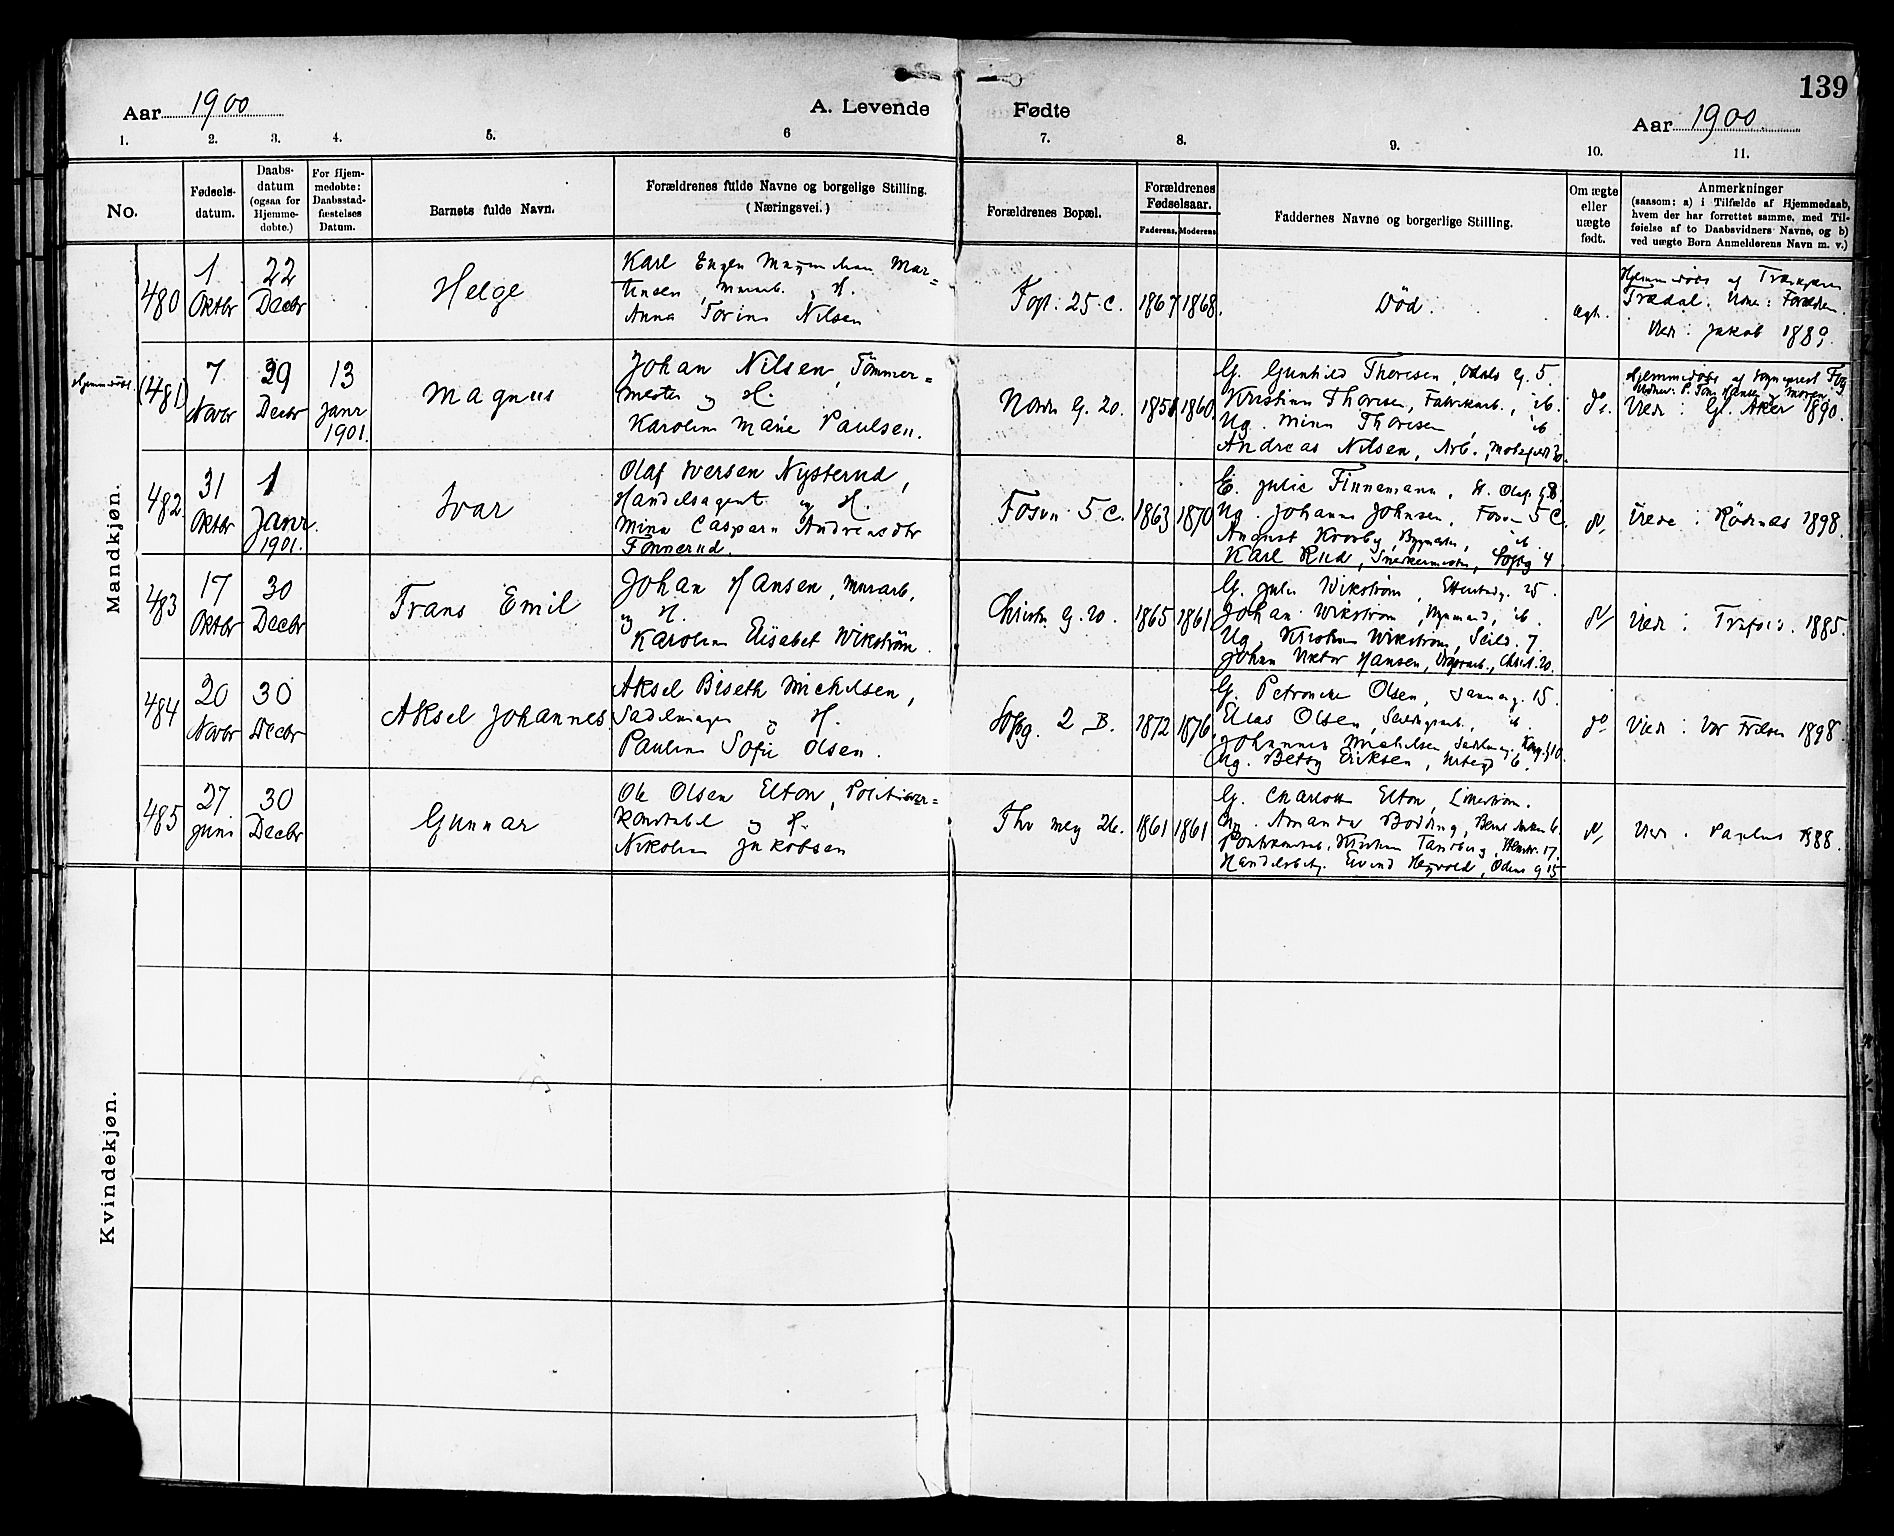 139
Aar 1900
A. Levende Fødte
Aar 1900
1. 2. 3. 4. 5. 6 7. 8. 9. 10. 11.
No.
Fødsels-
datum.
Daabs-
datum
(ogsaa for
Hjemme-
døbte.)
For Hjem-
medøbte:
Daabsstad-
fæstelses
Datum.
Barnets fulde Navn.
Forældrenes fulde Navne og borgelige Stilling.
(Næringsvei.)
Forældrenes Bopæl.
Forældrenes
Fødselsaar.
Faderens. Moderens
Faddernes Navne og borgerlige Stilling.
Om ægte
eller
uægte
født.
Anmerkninger
(saasom: a) i Tilfælde af Hjemmedaab,
hvem der har forrettet samme, med Til-
føielse af to Daabsvidners Navne, og b)
ved uægte Børn Anmelderens Navn m. v.)
Mandkjøn.
480
1
Oktbr
22
Decbr
Helge
Karl Eugen Mar=
tinsen, Murarb. , H.
Anna Nilsen
25 C.
1867
1868.
Død.
ægt.
Hjemmedøbt af
Trædal.
Viet: Jakob 1889
Hjemmedøbt
(481)
7
Novbr
29
Decbr
13
Janr
1901.
Magnus
Johan Nilsen, Tømmer=
mester og H.
Karoline Marie Paulsen.
Nordr G. 20.
1851
1860.
G. Gunhild Thoresen, Odals G. 5.
Kristian Thoresen, Fabrikarb., ib.
Ug. Mina Thoresen, ib
Andreas Nilsen, Arb.,
do.
Hjemmedøbt af Sogneprest
Viede: Gl. Aker 1890.
482
31
Oktbr
1
Janr.
1901.
Ivar
Olaf Iversen Nysterud,
Handelsagent og H.
Mina Caspara Andreasdtr
Tønnerud.
Fossvn 5 C.
1863
1870
E. Julie Finnemann, St. Olafs g
Ug. Johanne Johnsen, Fossvn 5 C.
August Bygmester, ib
Karl Rud, Snekkermester, Sofsg 4
do,
Viede: Rødenes 1898.
483
17
Oktbr
30
Decbr
Frans Emil
Johan Hansen, Murarb.
og H.
Karoline Elisabet Wikstrøm.
Christn G. 20.
1865
1861
G. Julie Wikstrøm, Etterstadg. 25.
Johan Wikstrøm, ib.
Ug. Kirstine Wikstrøm, Seild. 7.
Johan Viktor Hansen, Christ. 20.
do
Viede: Trefold. 1885.
484
20
Novbr
30
Decbr
Aksel Johannes
Aksel Biseth Michelsen,
Sadelmager og H.
Pauline Sofie Olsen.
Sofsg. 2 B.
1872
1876
G. Petronelle Olsen, 15.
Elias Olsen ib
Johannes Michelsen, Sadelmag.
Ug. Betsy Eriksen,
do
Viede: Vor Frelser 1898.
485
27
Juni
30
Decbr
Gunnar
Ole Olsen Elton, Politiover=
konstabel og H.
Nikoline Jakobsen
Thv Meyg 26.
1861
1861
G. Charlotte Elton, Lillestrøm.
Ug. Amanda Bodding,
Politikonstab. Kristian Tandberg,
Handelsbetj. Eivind Heyvold, Odins g 15
do
Viede: Paulus 1888.
Kvindekjøn.